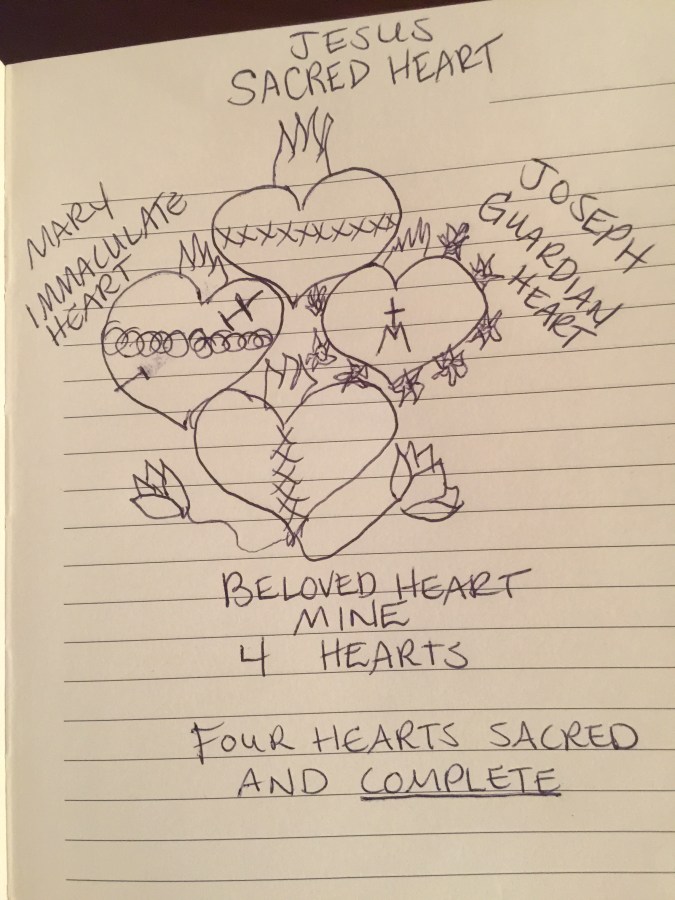 JESUS
SACRED HEART
MARY
IMMACULATE
HEART
JOSEPH
GUARDIAN
HEART
BELOVED HEART
MINE
4 HEARTS
FOUR HEARTS SACRED
AND COMPLETE